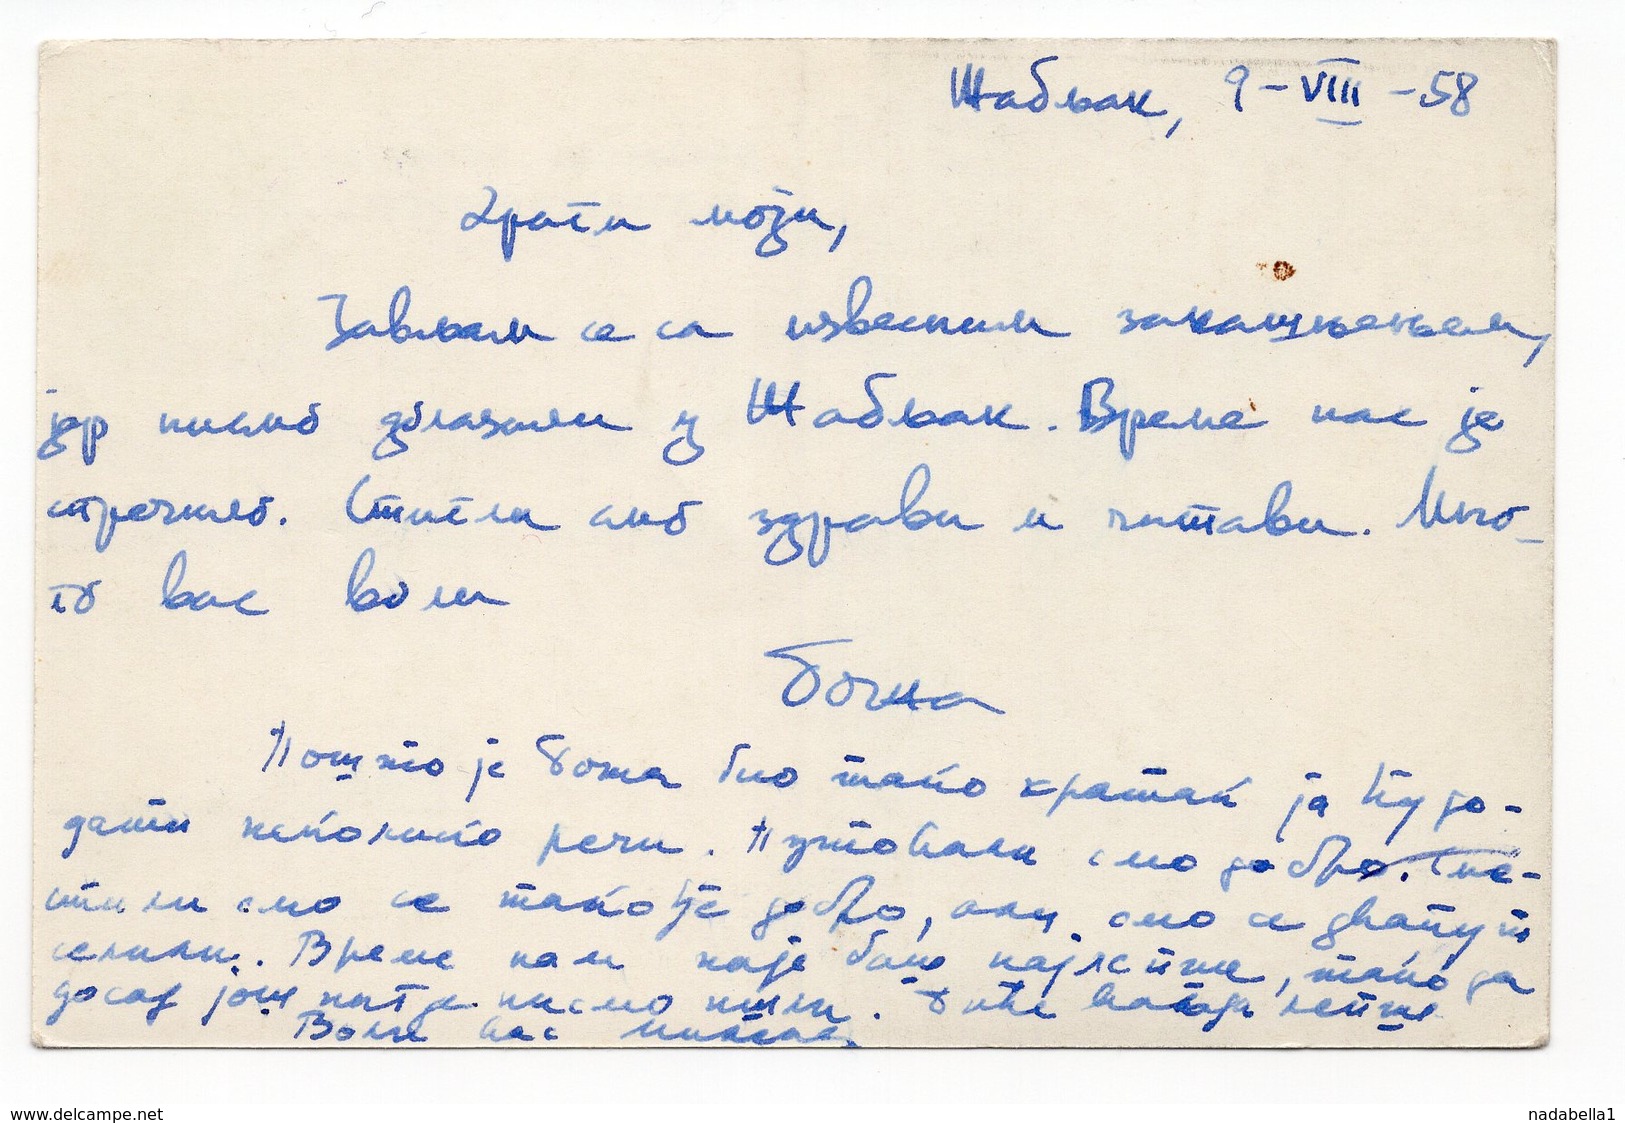 Жабљак, 9-VIII-58
Драги моји,
Јављам се са извесним закашњењем,
јер нисмо долазили у Жабљак. Време нас је
спречило. Стигли смо здрави и читави. Мно-
го вас воли
Бочна
Пошто је Боша био тако кратак ја ћу до-
дати неколико речи. Путовали смо добро. Сме-
стили смо се такође добро, али смо се двапут
селили. Време нам није било најлепше, тако да
досад још нигде нисмо ишли. Биће ваљда лепше
Воли вас
www.delcampe.net
nadabella1